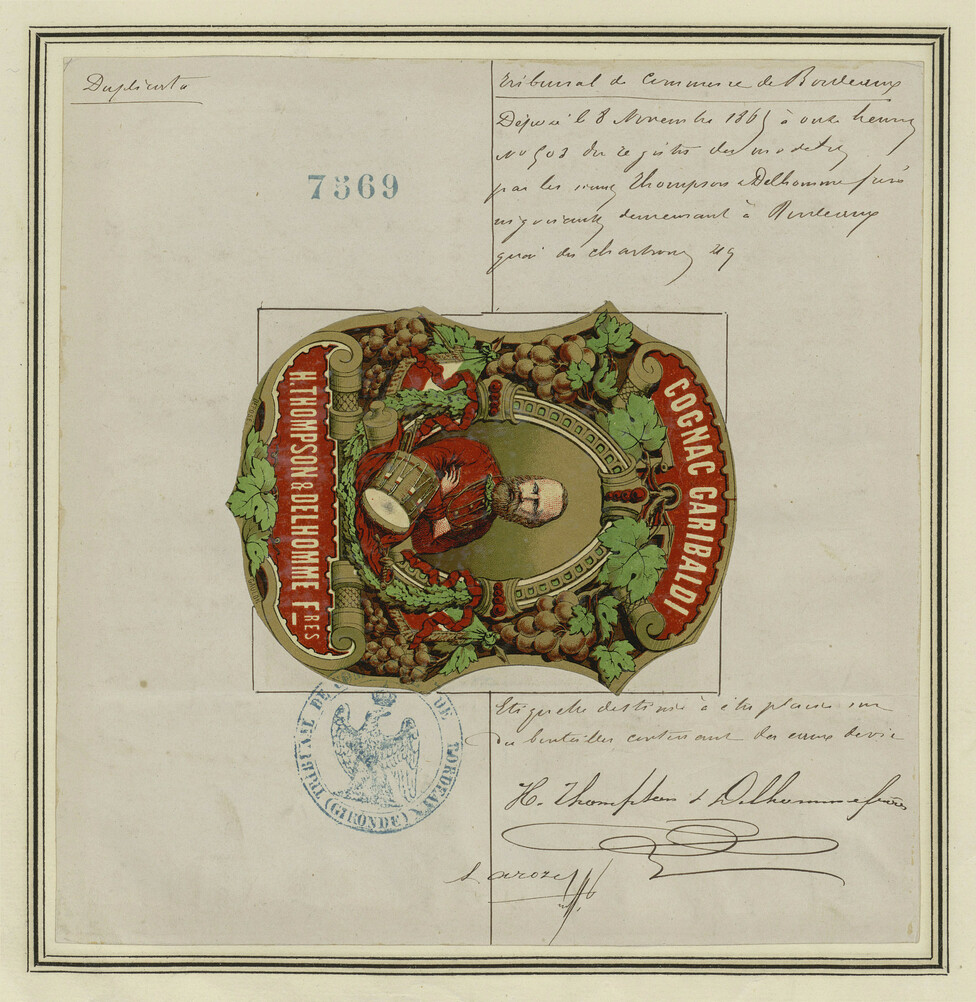 Duplicata
7569
Tribunal de Commerce de Bordeaux
Déposé le 8 Novembre 1865 à onze heures
No 503 du registre des modèles
par les sieurs Thompson & Delhomme frères
négociants demeurant à Bordeaux
quai des chartrons 49
COGNAC GARIBALDI
H. THOMPSON & DELHOMME FRES
TRIBUNAL DE DE BORDEAUX
(GIRONDE)
Etiquette destinée à être placée sur
des bouteilles contenant des eaux de vie
H. Thompson & Delhomme frères
Laroze